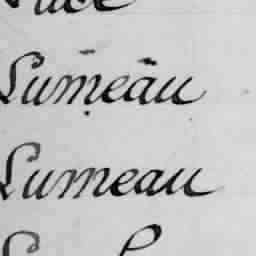 Lumeau
Lumeau